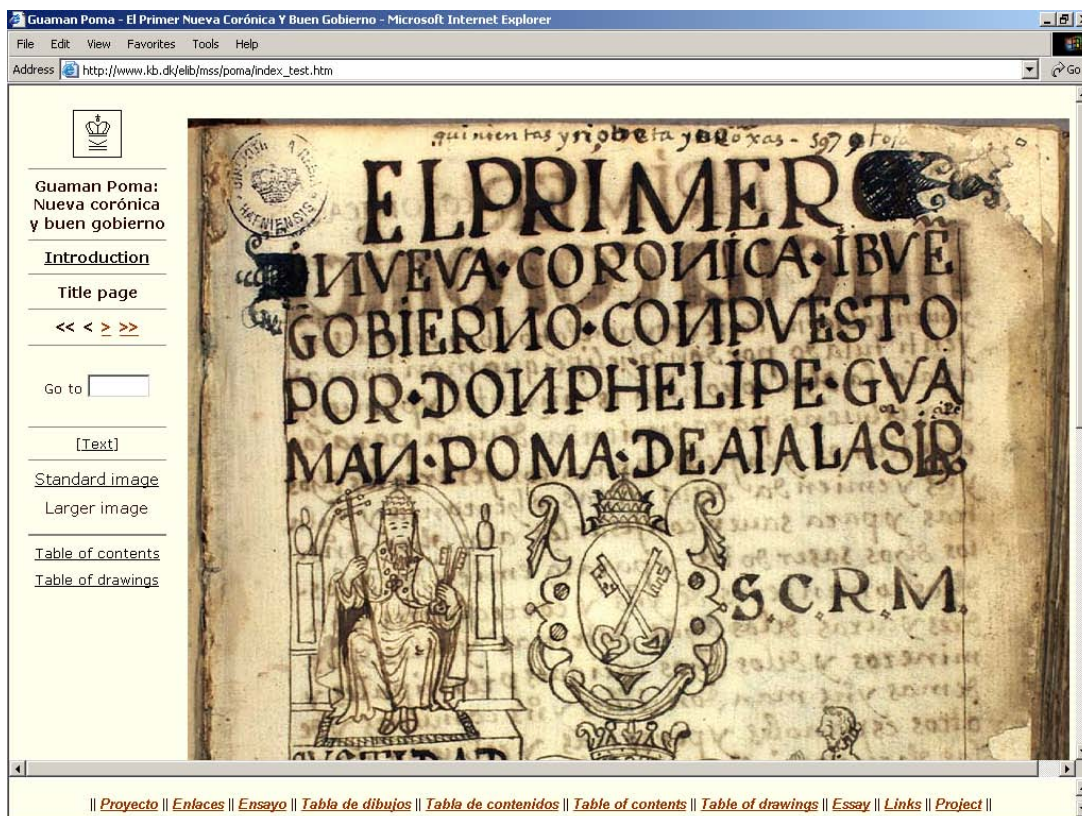 Guaman Poma - El Primer Nueva Corónica Y Buen Gobierno - Microsoft Internet Explorer
File Edit View Favorites Tools Help
Address http://www.kb.dk/elib/mss/poma/index_test.htm Go
Guaman Poma:
Nueva corónica
y buen gobierno
Introduction
Title page
<< < > >>
Go to
[Text]
Standard image
Larger image
Table of contents
Table of drawings
EL PRIMER
NVEVA·CORONICA·IBVĒ
GOBIERNO·CONPVESTO
POR·DON PHELIPE·GVA
MAN·POMA·DE AIALA
S.C.R.M.
|| Proyecto || Enlaces || Ensayo || Tabla de dibujos || Tabla de contenidos || Table of contents || Table of drawings || Essay || Links || Project ||